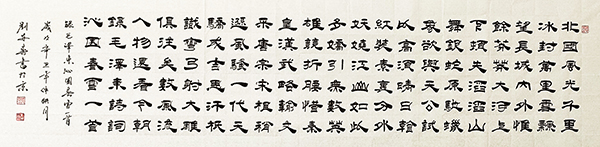 北國風光千里
冰封萬里雪飄
望長城內外惟
餘莽莽大河上
下頓失滔滔山
舞銀蛇原馳蠟
象欲與天公試
比高須晴日看
紅裝素裹分外
妖嬈江山如此
多嬌引無數英
雄競折腰惜秦
皇漢武略輸文
采唐宗宋祖稍
遜風騷一代天
驕成吉思汗只
識彎弓射大雕
俱往矣數風流
人物還看今朝
錄毛澤東詩詞
沁園春雪一首
毛澤東沁園春雪
歲次辛丑年
書於京